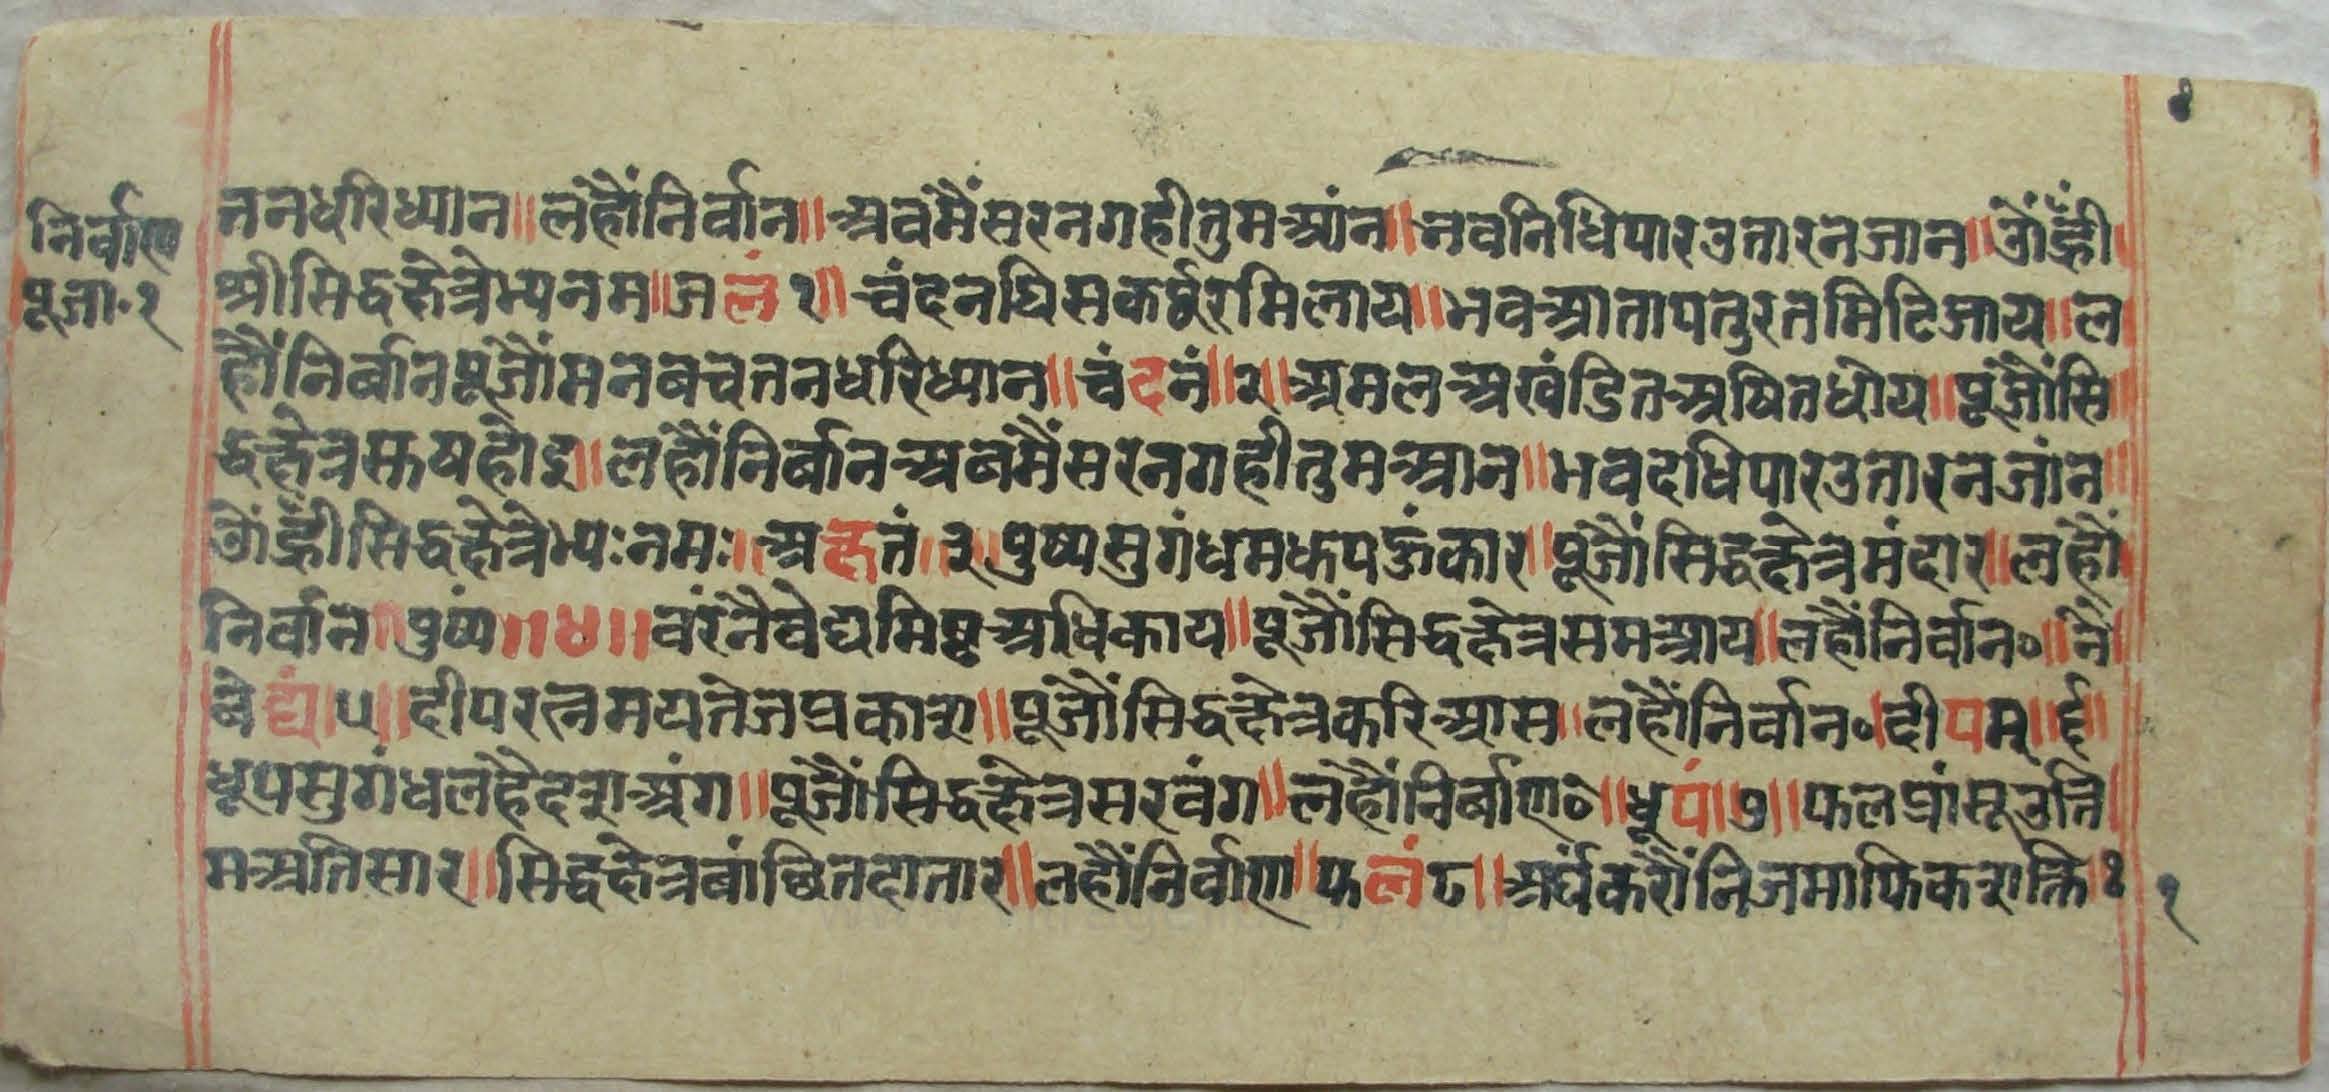 निर्वाण
पूजा॰१
ननधरिध्यान॥लहौंनिर्वान॥अवमैंसरनगहीतुमआंन॥नवनिधिपारउतारनजान॥ओंह्रीं
श्रीसिद्धक्षेत्रेभ्यनम॥जलं१॥चंदनघिसकर्पूरमिलाय॥भवआतापतुरतमिटिजाय॥ल
हौंनिर्बानपूजौंमनबचतनधरिध्यान॥चंदनं॥२॥अमलअखंडितअषितधोय॥पूजौंसि
द्धक्षेत्रक्षयहोइ॥लहौंनिर्बानअबमैंसरनगहीतुमआन॥भवदधिपारउतारनजांन
ओंह्रींसिद्धक्षेत्रेभ्यःनमः॥अक्षतं॥३॥पुष्पसुगंधमधुपऊंकार॥पूजौंसिद्धक्षेत्रमंदार॥लहौं
निर्वान॥पुष्पं॥४॥वरंनैवेद्यमिष्टअधिकाय॥पूजौंसिद्धक्षेत्रसमआय॥लहौंनिर्वान॰॥नै
बेद्यं।५॥दीपरत्नमयतेजप्रकाश॥पूजौंसिद्धक्षेत्रकरिआस॥लहौंनिर्वान॰।दीपम्॥६॥
धूपसुगंधलहैदशअंग॥पूजौंसिद्धक्षेत्रसरवंग॥लहौंनिर्बाण॰॥धूपं।७॥फलप्रांसूउत्ति
मअतिसार॥सिद्धक्षेत्रबांछितदातार॥लहौंनिर्वाण॥फलं८॥अर्घंकरौंनिजमाफिकशक्ति
१